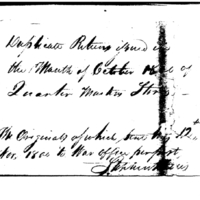 Duplicate Return issued in
the Month of October 18 of
Quarter Master
the Originals of which sent the 12th
Nov. 1800 to War Office per post